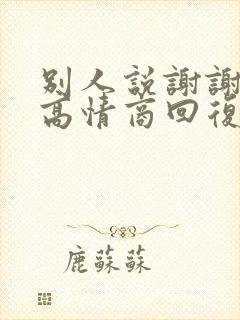 別人説謝謝
高情商回復
鹿蘇蘇